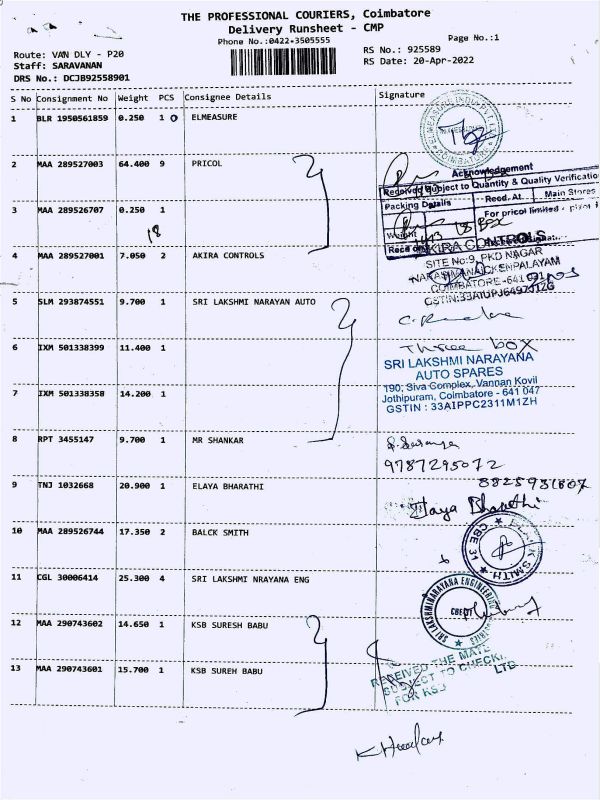 THE PROFESSIONAL COURIERS, Coimbatore
Delivery Runsheet - CMP
Phone No.:0422-3505555
Page No.:1
Route: VAN DLY - P20
Staff: SARAVANAN
DRS No.: DCJB92558901
RS No.: 925589
RS Date: 20-Apr-2022
S No Consignment No Weight PCS Consignee Details Signature
1 BLR 1950561859 0.250 1 ELMEASURE
ELMEASURE INDIA PVT LTD
COIMBATORE
2 MAA 289527003 64.400 9 PRICOL
Acknowledgement
Received Subject to Quantity & Quality Verification
Packing Details Recd. At. Main Stores
For pricol limited - plant I
Weight
3 MAA 289526707 0.250 1
18
18 Box
4 MAA 289527001 7.050 2 AKIRA CONTROLS
AKIRA CONTROLS
SITE No:9, PKD NAGAR
NARASIMANAICKENPALAYAM
COIMBATORE - 641 031
5 SLM 293874551 9.700 1 SRI LAKSHMI NARAYAN AUTO
6 IXM 501338399 11.400 1
Three box
SRI LAKSHMI NARAYANA
AUTO SPARES
190, Siva Complex, Vannan Kovil
Jothipuram, Coimbatore - 641 047
GSTIN : 33AIPPC2311M1ZH
7 IXM 501338358 14.200 1
8 RPT 3455147 9.700 1 MR SHANKAR
9787295072
9 TNJ 1032668 20.900 1 ELAYA BHARATHI
Elaya Bharathi
10 MAA 289526744 17.350 2 BALCK SMITH
BLACK SMITH
CBE 31
11 CGL 30006414 25.300 4 SRI LAKSHMI NRAYANA ENG
SRI LAKSHMINARAYANA ENGINEERING
12 MAA 290743602 14.650 1 KSB SURESH BABU
13 MAA 290743601 15.700 1 KSB SUREH BABU
RECEIVED THE MATE
SUBJECT TO CHECKI
FOR KSB LTD